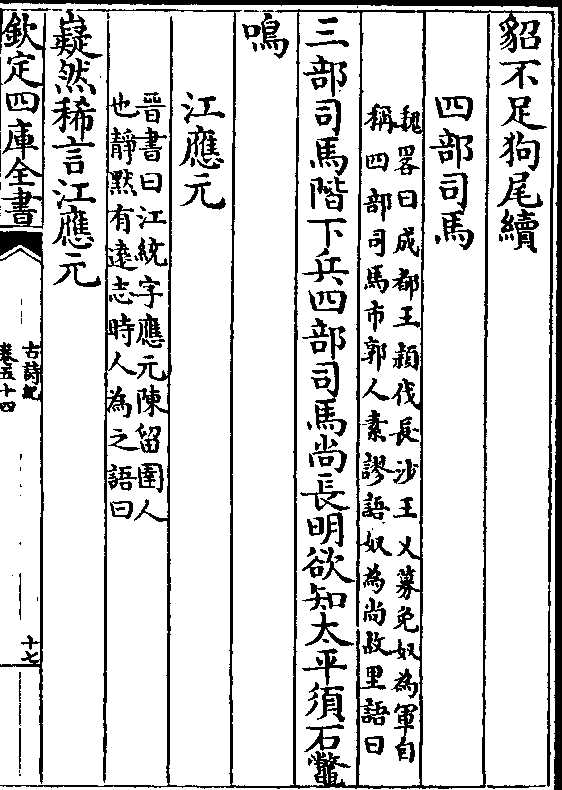 貂不足狗尾續
四部司馬
魏畧曰成都王頴伐長沙王乂募免奴為軍自
稱四部司馬市郭人素謬語奴為尚故里語曰
三部司馬階下兵四部司馬尚長明欲知太平須石鼈
鳴
江應元
晉書曰江統字應元陳留圉人
也靜默有遠志時人為之語曰
嶷然稀言江應元
欽定四庫全書
古詩紀
卷五十四
十七